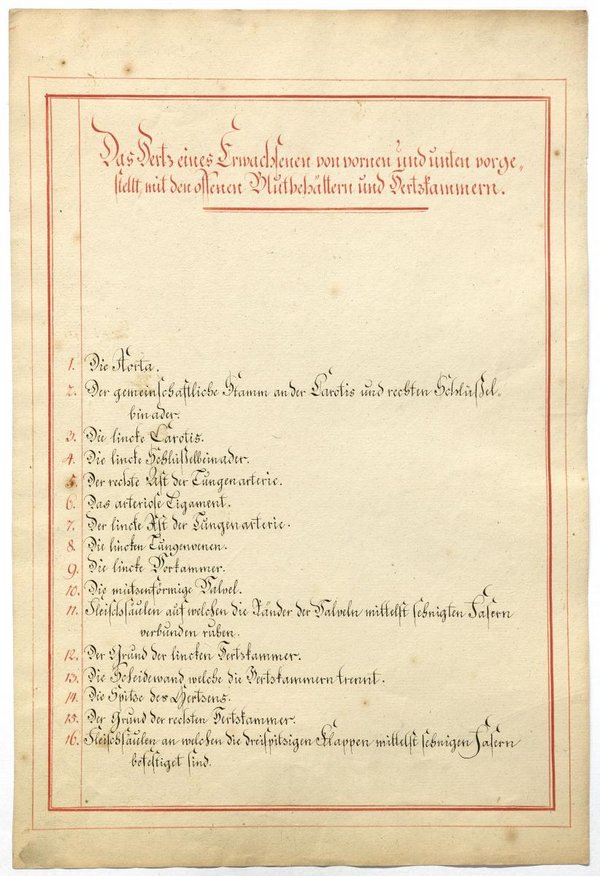 Das Hertz eines Erwachsenen von vornen und unten vorge„
stellt, mit den offenen Blutbehältern und Hertzkammern.
1. Die Aorta.
2. Der gemeinschaftliche Stamm an der Carotis und rechten Schlüßel„
binader.
3. Die lincke Carotis.
4. Die lincke Schlüßelbeinader.
5. Der rechte Ast der Lungenarterie.
6. Das arteriose Ligament.
7. Der lincke Ast der Lungenarterie.
8. Die lincken Lungenvenen.
9. Die lincke Vorkammer.
10. Die mützenförmige Valvel.
11. Fleischsäulen auf welchen die Ränder der Valveln mittelst sehnigten Fasern
verbunden ruhen.
12. Der Grund der lincken Hertzkammer.
13. Die Scheidewand welche die Hertzkammern trennt.
14. Die Spitze des Hertzens.
15. Der Grund der rechten Hertzkammer.
16. Fleischsäulen an welchen die dreispitzigen Klappen mittelst sehnigen Fasern
befestiget sind.